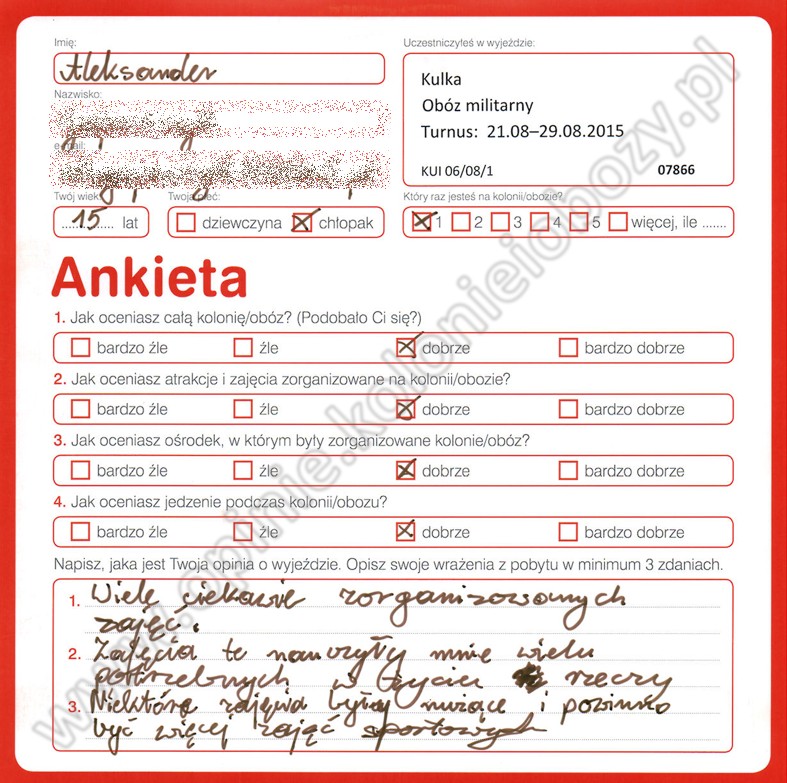 Imię:
Aleksander
Nazwisko:
e-mail:
Twój wiek:
15 lat
Twoja płeć:
dziewczyna chłopak
Uczestniczyłeś w wyjeździe:
Kulka
Obóz militarny
Turnus: 21.08–29.08.2015
KUI 06/08/1 07866
Który raz jesteś na kolonii/obozie?
1 2 3 4 5 więcej, ile .......
Ankieta
1. Jak oceniasz całą kolonię/obóz? (Podobało Ci się?)
bardzo źle źle dobrze bardzo dobrze
2. Jak oceniasz atrakcje i zajęcia zorganizowane na kolonii/obozie?
bardzo źle źle dobrze bardzo dobrze
3. Jak oceniasz ośrodek, w którym były zorganizowane kolonie/obóz?
bardzo źle źle dobrze bardzo dobrze
4. Jak oceniasz jedzenie podczas kolonii/obozu?
bardzo źle źle dobrze bardzo dobrze
Napisz, jaka jest Twoja opinia o wyjeździe. Opisz swoje wrażenia z pobytu w minimum 3 zdaniach.
1. Wiele ciekawie zorganizowanych
zajęć.
2. Zajęcia te nauczyły mnie wielu
potrzebnych w życiu rzeczy
3. Niektóre zajęcia były nużące i powinno
być więcej zajęć sportowych
www.opinie.kolonieiobozy.pl